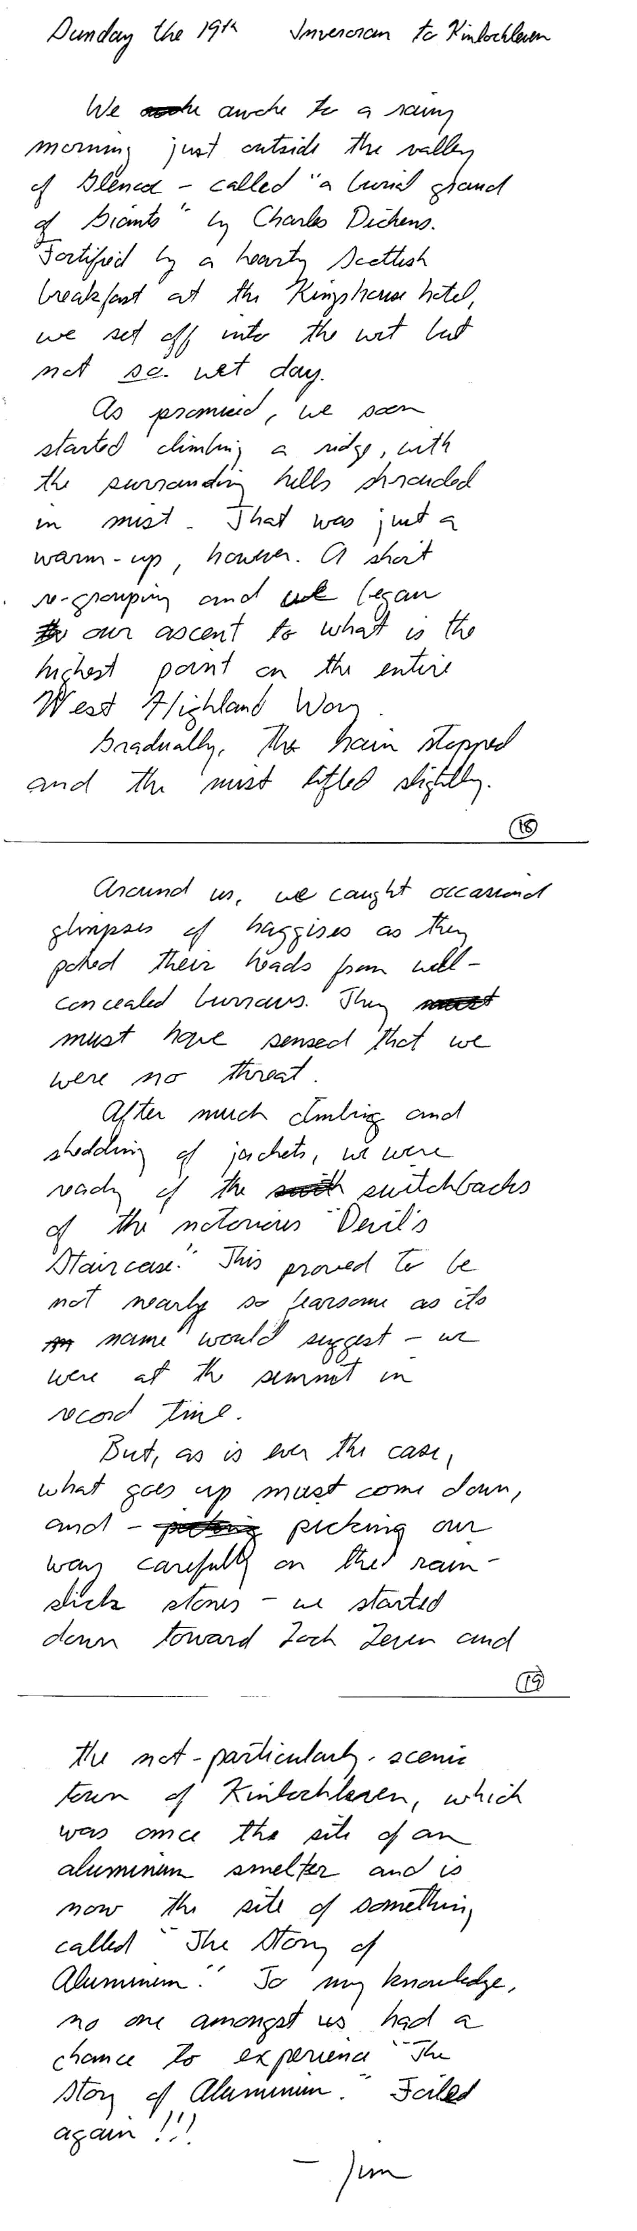 Sunday the 19th Inveroran to Kinlochleven
We awoke to a rainy
morning just outside the valley
of Glencoe - called "a burial ground
of Giants" by Charles Dickens.
Fortified by a hearty Scottish
breakfast at the Kingshouse hotel,
we set off into the wet but
not so wet day.
As promised, we soon
started climbing a ridge, with
the surrounding hills shrouded
in mist. That was just a
warm-up, however. A short
re-grouping and we began
our ascent to what is the
highest point on the entire
West Highland Way.
Gradually, the rain stopped
and the mist lifted slightly.
18
Around us, we caught occasional
glimpses of haggises as they
poked their heads from well-
concealed burrows. They
must have sensed that we
were no threat.
After much climbing and
shedding of jackets, we were
ready of the switchbacks
of the notorious "Devil's
Staircase." This proved to be
not nearly so fearsome as its
name would suggest - we
were at the summit in
record time.
But, as is ever the case,
what goes up must come down,
and - picking our
way carefully on the rain-
slick stones - we started
down toward Loch Leven and
19
the not-particularly-scenic
town of Kinlochleven, which
was once the site of an
aluminium smelter and is
now the site of something
called "The Story of
Aluminium." To my knowledge,
no one amongst us had a
chance to experience "The
Story of Aluminium." Foiled
again!!!
- Jim